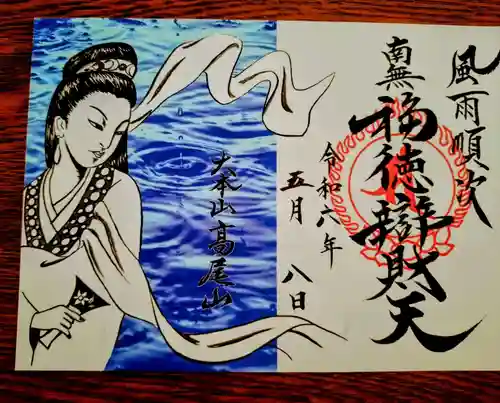 風雨順次
南無
福徳辯財天
令和六年
五月八日
大本山高尾山